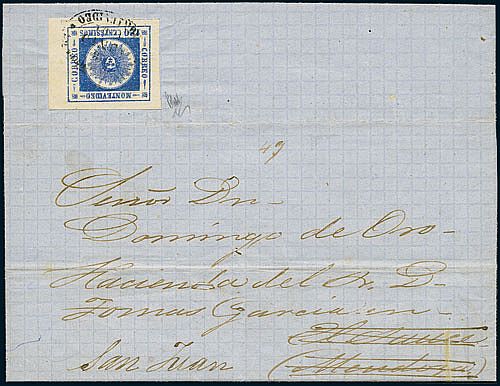 MONTEVIDEO
CENTESIMOS
CORREO
CORREO
MONTEVIDEO
49
Señor Dn
Domingo de Oro
Hacienda del Sr. D.
Tomas Garcia en
San Juan
(Mendoza)